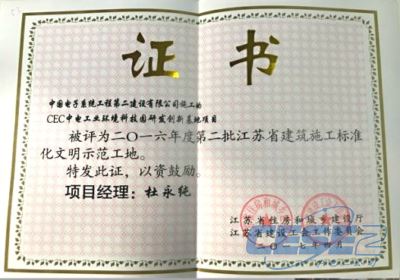 证 书
中国电子系统工程第二建设有限公司施工的
CEC中电工业环境科技园研发创新基地项目
被评为二〇一六年度第二批江苏省建筑施工标准
化文明示范工地。
特发此证，以资鼓励。
项目经理：杜永纯
江苏省住房和城乡建设厅
江苏省建设工会工作委员会
二〇一七年四月